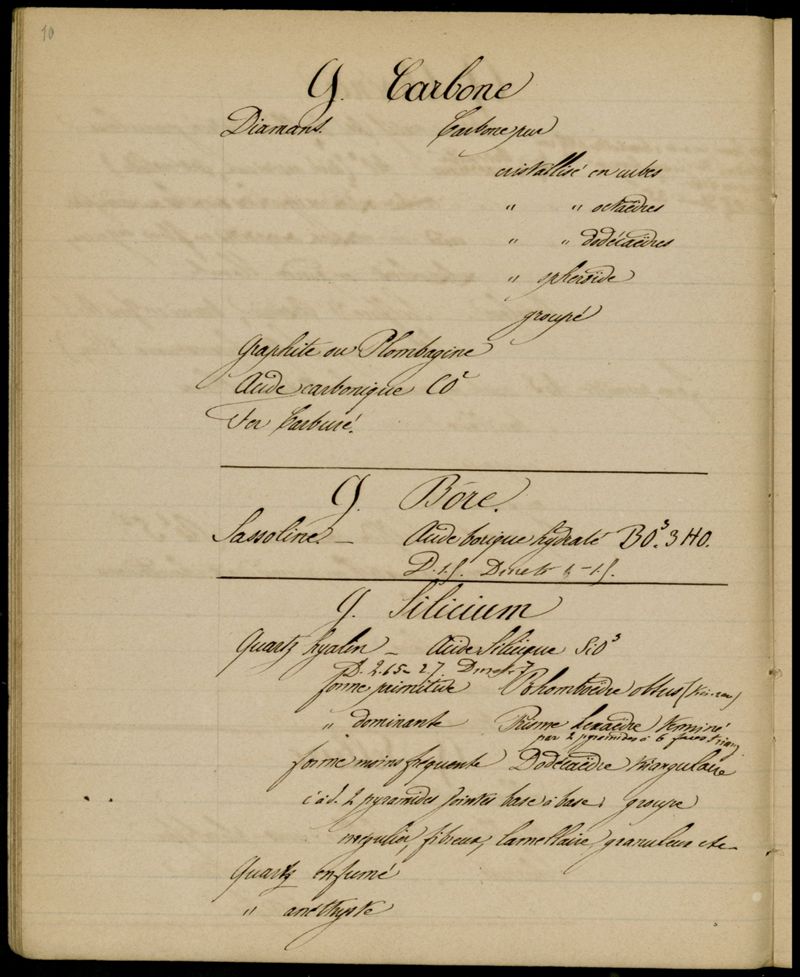 10
G. Carbone
Diamant. Carbone pur
cristallisé en cubes
" " octaëdres
" " dodécaëdres
" spheroïde
groupé
Graphite ou Plombagine
Acide carbonique CO²
Fer Carburé.
G. Bore.
Sassoline — Acide borique hydraté BO³. 3 HO.
G. Silicium
Quartz hyalin — Acide Silicique SiO³
D. 2.65 - 2.7. Dureté 7
forme primitive Rhomboëdre obtus
" dominante Prisme hexaèdre terminé
par 2 pyramides à 6 faces triang.
forme moins fréquente Dodécaëdre triangulaire
c'à d. 2 pyramides jointes base à base. groupe
irregulier, fibreux, lamellaire, granuleux etc
Quartz enfumé
" améthyste